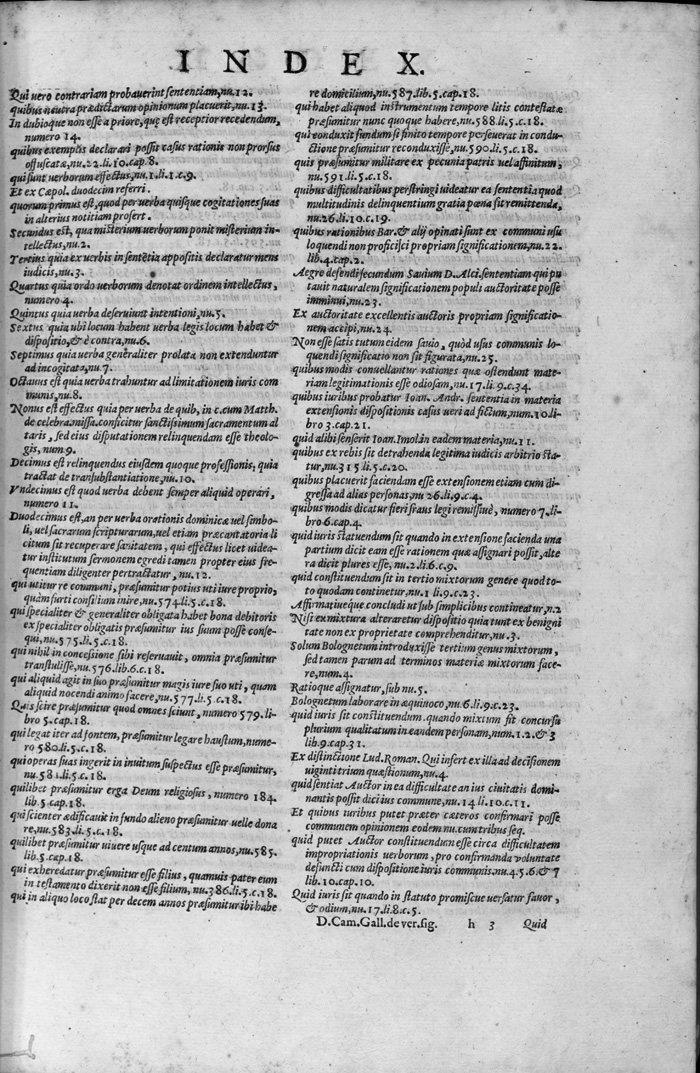 INDEX.
Qui uero contrariam probauerint sententiam, nu.12.
quibus neutra prædictarum opinionum placuerit, nu.13.
In dubioque non esse a priore, que est receptior recedendum,
numero 14.
quibus exemplis declarari possit casus rationis non prorsus
offuscatæ, nu.22.li.10.cap.8.
qui sunt uerborum effectus, nu.1.li.1.c.9.
Et ex Cæpol. duodecim referri.
quorum primus est, quod per uerba quisque cogitationes suas
in alterius notitiam profert.
Secundus est, qua misterium uerborum ponit misterium in-
tellectus, nu.2.
Tertius quia ex uerbis in sentētia appositis declaratur mens
iudicis, nu.3.
Quartus quia ordo uerborum denotat ordinem intellectus,
numero 4.
Quintus quia uerba deseruiunt intentioni, nu.5.
Sextus quia ubi locum habent uerba legis locum habet &
dispositio, & è contra, nu.6.
Septimus quia uerba generaliter prolata non extenduntur
ad incogitata, nu.7.
Octauus est quia uerba trahuntur ad limitationem iuris com
munis, nu.8.
Nonus est effectus quia per uerba de quib, in c.cum Matth.
de celebra.missa.conficitur sanctissimum sacramentum al
taris, sed eius disputationem relinquendam esse theolo-
gis, num 9.
Decimus est relinquendus eiusdem quoque professionis, quia
tractat de transubstantiatione, nu.10.
Vndecimus est quod uerba debent semper aliquid operari,
numero 11.
Duodecimus est, an per uerba orationis dominicæ uel simbo-
li, uel sacrarum scripturarum, uel etiam præcantatoria li
citum sit recuperare sanitatem, qui effectus licet uidea-
tur institutum sermonem egredi tamen propter eius fre-
quentiam diligenter pertractatur, nu.12.
qui utitur re communi, præsumitur potius uti iure proprio,
quàm furti consilium inire, nu.574.li.5.c.18.
qui specialiter & generaliter obligata habet bona debitoris
ex specialiter obligatis præsumitur ius suum posse conse-
qui, nu.575.li.5.c.18.
qui nihil in concessione sibi reseruauit, omnia præsumitur
transtulisse, nu.576.lib.6.c.18.
qui aliquid agit in suo præsumitur magis iure suo uti, quam
aliquid nocendi animo facere, nu.577.li.5.c.18.
Quis scire præsumitur quod omnes sciunt, numero 579.li-
bro 5.cap.18.
qui legat iter ad fontem, præsumitur legare haustum, nume-
ro 580.li.5.c.18.
qui operas suas ingerit in inuitum suspectus esse præsumitur,
nu.581.li.5.c.18.
quilibet præsumitur erga Deum religiosus, numero 184.
lib.5.cap.18.
qui scienter ædificauit in fundo alieno præsumitur uelle dona
re, nu.583.li.5.c.18.
quilibet præsumitur uiuere usque ad centum annos, nu.585.
lib.5.cap.18.
qui exheredatur præsumitur esse filius, quamuis pater eum
in testamento dixerit non esse filium, nu.586.li.5.c.18.
qui in aliquo loco stat per decem annos præsumitur ibi habe
re domicilium, nu.587.lib.5.cap.18.
qui habet aliquod instrumentum tempore litis contestatæ
præsumitur nunc quoque habere, nu.588.li.5.c.18.
qui conduxit fundum si finito tempore perseuerat in condu-
ctione præsumitur reconduxisse, nu.590.li.5.c.18.
quis præsumitur militare ex pecunia patris uel affinitum,
nu.591.li.5.c.18.
quibus difficultatibus perstringi uideatur ea sententia quod
multitudinis delinquentium gratia pœna sit remittenda,
nu.26.li.10.c.19.
quibus rationibus Bar. & alij opinati sunt ex communi usu
loquendi non proficisci propriam significationem, nu.22.
lib.4.cap.2.
Aegre defendi secundum Sauium D. Alci.sententiam qui pu
tauit naturalem significationem populi auctoritate posse
imminui, nu.23.
Ex auctoritate excellentis auctoris propriam significatio-
nem accipi, nu.24.
Non esse satis tutum eidem sauio, quòd usus communis lo-
quendi significatio non sit figurata, nu.25.
quibus modis conuellantur rationes quæ ostendunt mate-
riam legitimationis esse odiosam, nu.17.li.9.c.34.
quibus iuribus probatur Ioan. Andr. sententia in materia
extensionis dispositionis casus ueri ad fictum, num.10.li-
bro 3.cap.21.
quid alibi senserit Ioan.Imol.in eadem materia, nu.11.
quibus ex rebis sit detrahenda legitima iudicis arbitrio sta-
tur, nu.315.li.5.c.20.
quibus placuerit faciendam esse extensionem etiam cum di-
gressa ad alias personas, nu 26.li.9.c.4.
quibus modis dicatur fieri fraus legi remissiuè, numero 7.li-
bro 6.cap.4.
quid iuris statuendum sit quando in extensione facienda una
partium dicit eam esse rationem quæ assignari possit, alte
ra dicit plures esse, nu.2.li.6.c.9.
quid constituendum sit in tertio mixtorum genere quod to-
to quodam continetur, nu.1.li.9.c.23.
Affirmatiueque concludi ut sub simplicibus contineatur, n.2
Nisi ex mixtura alteraretur dispositio quia tunc ex benigni
tate non ex proprietate comprehenditur, nu.3.
Solum Bolognetum introduxisse tertium genus mixtorum,
sed tamen parum ad terminos materiæ mixtorum face-
re, num.4.
Ratioque assignatur, sub nu.5.
Bolognetum laborare in æquinoco, nu.6.li.9.c.23.
quid iuris sit constituendum.quando mixtum sit concursu
plurium qualitatum in eandem personam, num.1.2.& 3
lib.9.cap.31.
Ex distinctione Lud.Roman. Qui infert ex illa ad decisionem
uiginti trium quæstionum, nu.4.
quid sentiat Auctor in ea difficultate an ius ciuitatis domi-
nantis possit dici ius commune, nu.14.li.10.c.11.
Et quibus iuribus putet præter cæteros confirmari posse
communem opinionem eodem nu.cum tribus seq.
quid putet Auctor constituendum esse circa difficultatem
impropriationis uerborum, pro confirmanda uoluntate
defuncti cum dispositione iuris communis, nu.4.5.6.& 7
lib.10.cap.10.
Quid iuris sit quando in statuto promiscue uersatur fauor,
& odium, nu.17.li.8.c.5.
D.Cam.Gall.de ver.sig. h 3 Quid